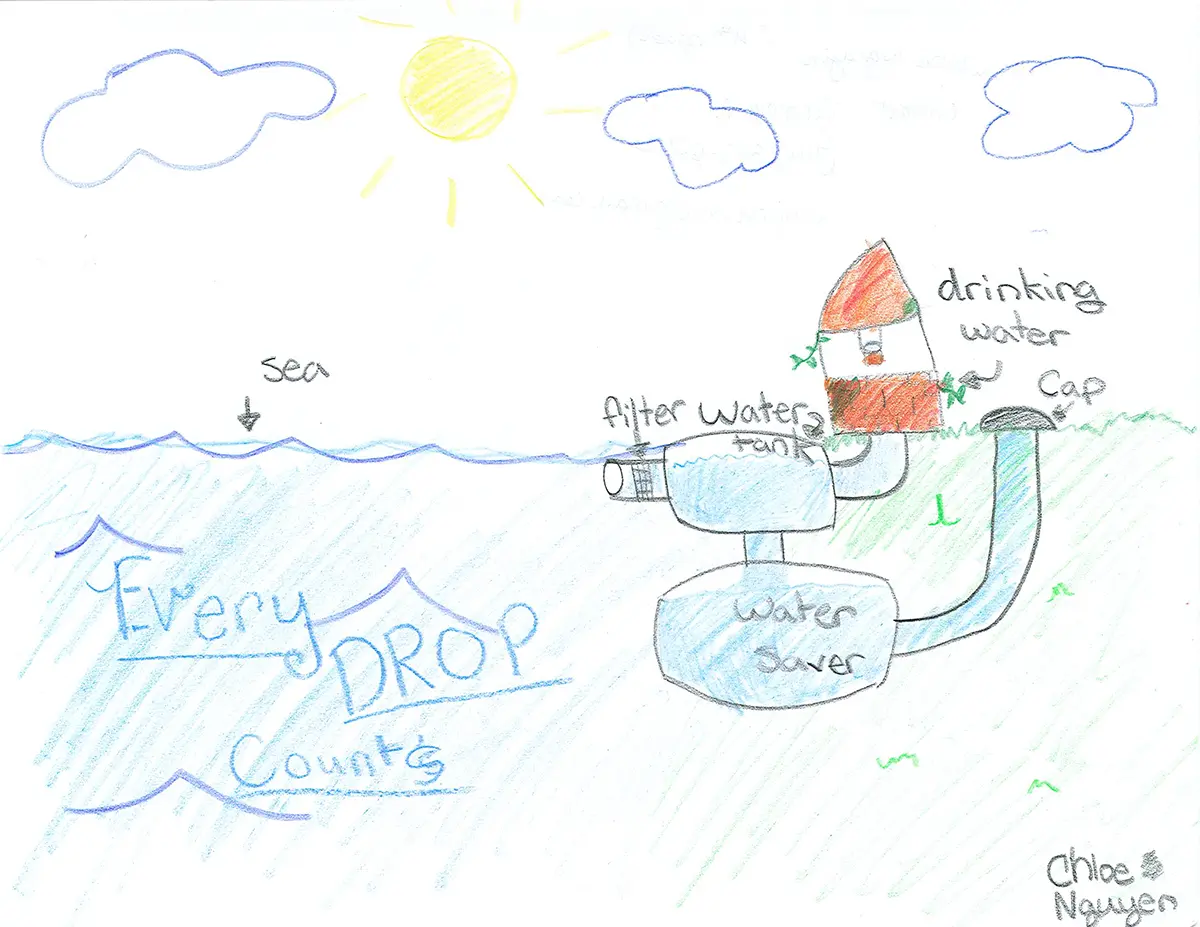 sea
drinking
water
Cap
filter
Water
tank
Water
Saver
Every
DROP
Counts
Chloe
Nguyen